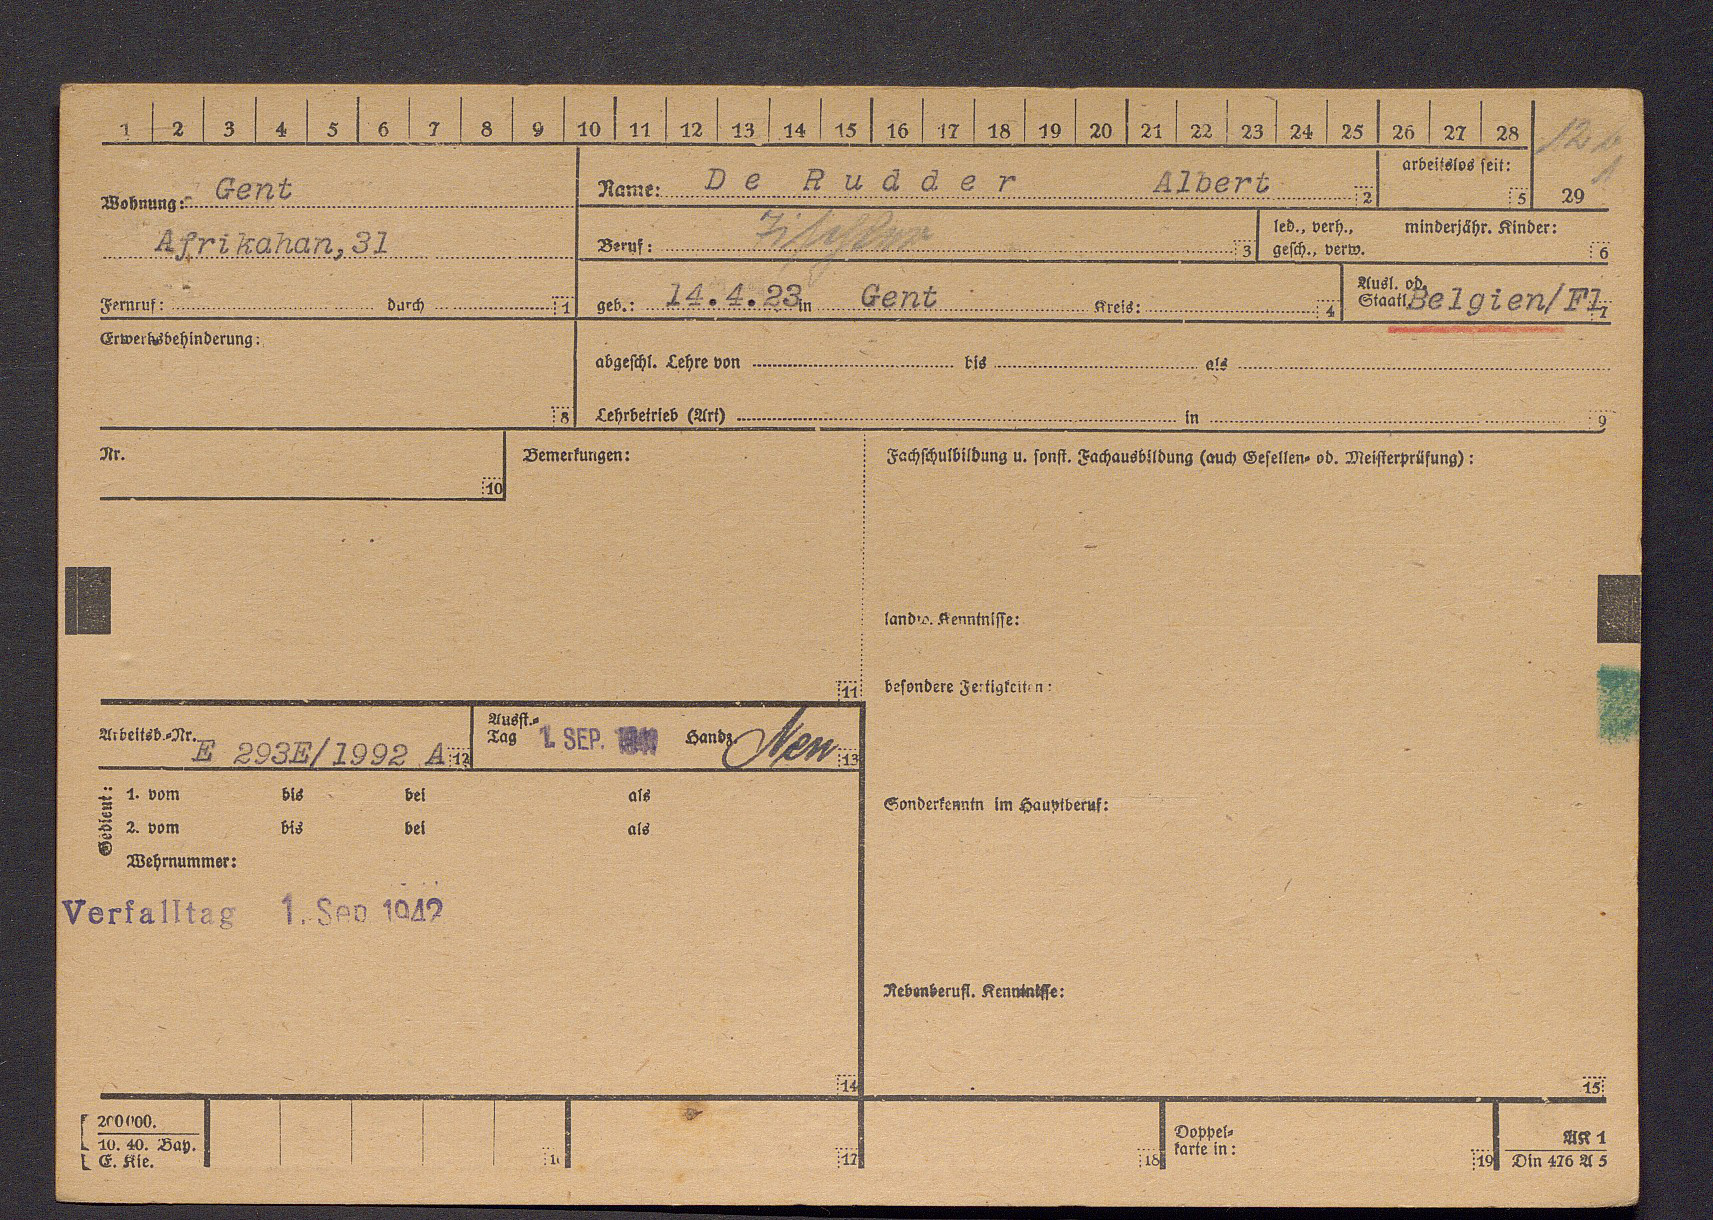 1 2 3 4 5 6 7 8 9 10 11 12 13 14 15 16 17 18 19 20 21 22 23 24 25 26 27 28
29
Wohnung: Gent
Afrikahan, 31
Fernruf: durch 1
Name: De Rudder Albert 2
arbeitslos seit: 5
Beruf: 3
led., verh., gesch., verw.
minderjähr. Kinder: 6
geb.: 14.4.23 in Gent Kreis: 4
Ausl. od. Staatl. Belgien/Fl. 7
Erwerbsbehinderung:
8
abgeschl. Lehre von bis als
Lehrbetrieb (Art) in 9
Nr.
10
Bemerkungen:
11
Fachschulbildung u. sonst. Fachausbildung (auch Gesellen- od. Meisterprüfung):
landw. Kenntnisse:
besondere Fertigkeiten:
Sonderkenntn im Hauptberuf:
Nebenberufl. Kenntnisse:
15
Arbeitsb.-Nr. E 293E/1992 A 12
Ausst.-Tag 1. SEP. 13
Handz.
Gedient:
1. vom bis bei als
2. vom bis bei als
Wehrnummer:
Verfalltag 1. Sep 1942
14
200000.
10. 40. Bay.
E. Kie.
16 17 18
Doppel-
karte in: 19
AK 1
Din 476 A 5